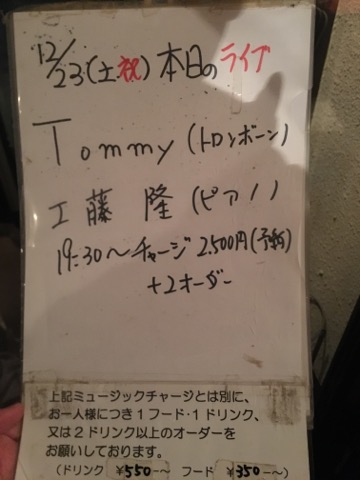 12/23(土祝)本日のライブ
Tommy(トロンボーン)
工藤 隆(ピアノ)
19:30〜チャージ 2,500円(予約)
+2オーダー
上記ミュージックチャージとは別に、
お一人様につき1フード・1ドリンク、
又は2ドリンク以上のオーダーを
お願いしております。
(ドリンク ¥550−〜 フード ¥350−〜)